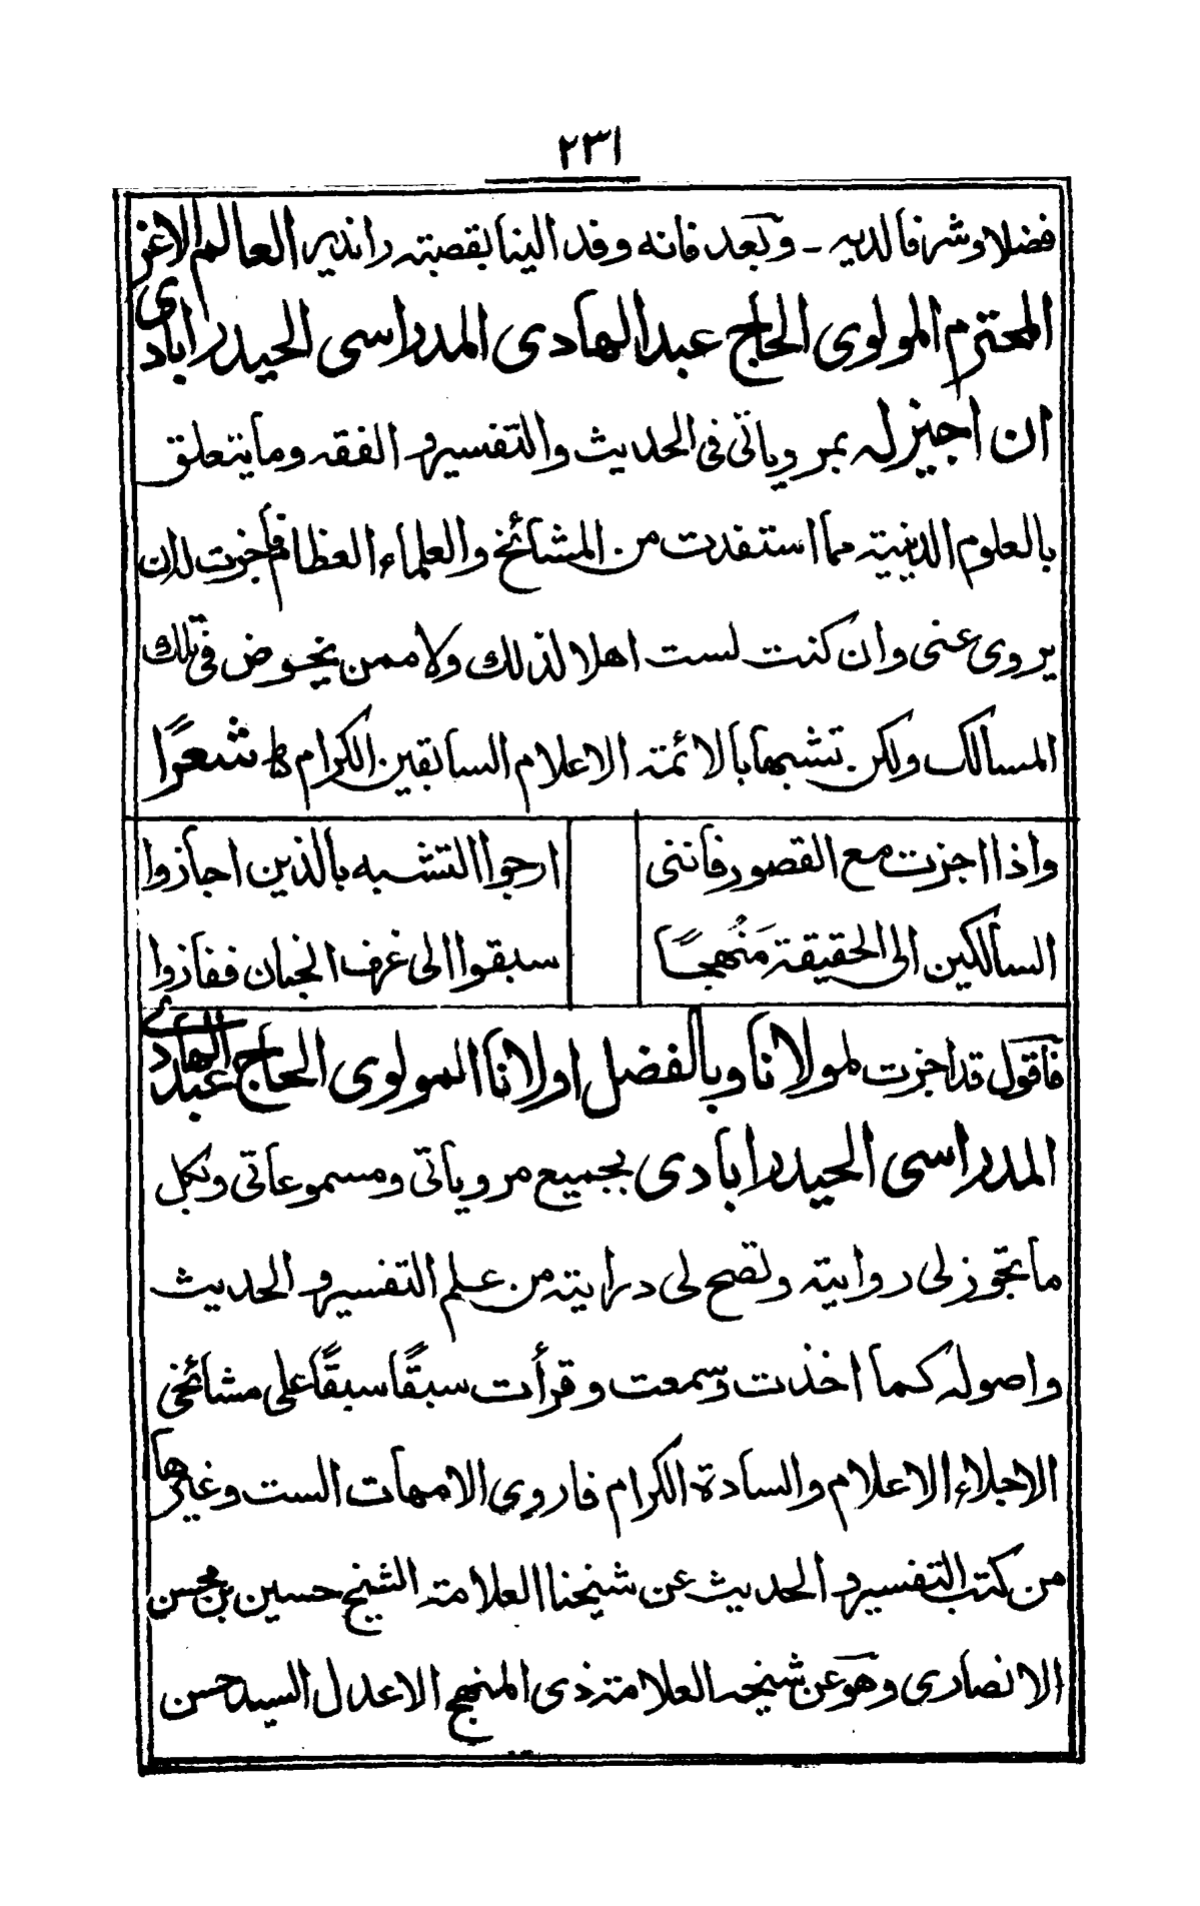 ٢٣١
فضلا وشرفا لديه ۔ وبعد فانه وفد الينا بقصبته راندير العالم الاغر
المحترم المولوى الحاج عبد الهادى المدراسى الحيدرابادى
ان اجيز له بمروياتى فى الحديث والتفسير و الفقه وما يتعلق
بالعلوم الدينية مما استفدت من المشائخ والعلماء العظام فأجزت له ان
يروى عنى وان كنت لست اهلا لذلك ولا ممن يخوض فى تلك
المسالك ولكن تشبها بالائمته الاعلام السابقين الكرام ط شعرًا
واذا اجزت مع القصور فاننى ارجوا التشبه بالذين اجازوا
السالكين الى الحقيقة مَنْهجًا سبقوا الى غرف الجنان ففازوا
فاقول قد اجزت لمولانا وبالفضل اولانا المولوى الحاج عبد الهادى
المدراسى الحيدرابادى بجميع مروياتى ومسموعاتى وبكل
ما تجوز لى روايته وتصح لى درايته من علم التفسير و الحديث
واصوله كما اخذت وسمعت وقرأت سبقًا سبقًا على مشائخى
الاجلاء الاعلام والسادة الكرام فاروى الامهات الست وغيرها
من كتب التفسير و الحديث عن شيخنا العلامته الشيخ حسين بن محسن
الانصارى وهو عن شيخه العلامته ذى المنهج الاعدل السيد حسن